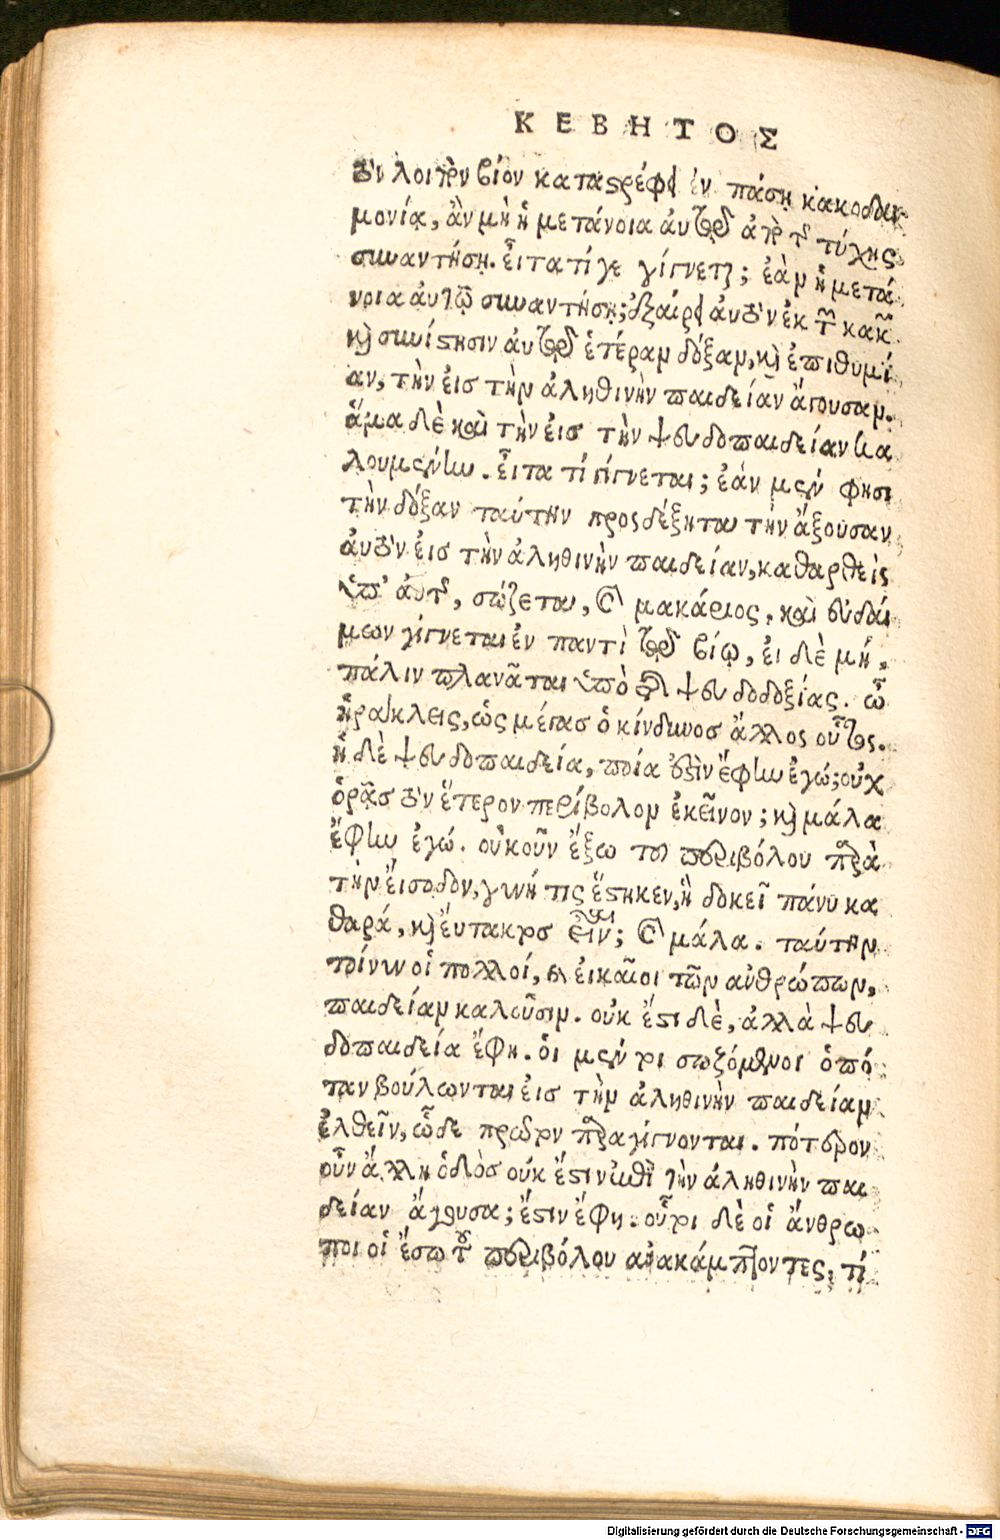 ΚΕΒΗΤΟΣ
τὸν λοιπὸν βίον καταστρέφει ἐν πάσῃ κακοδαι
μονίᾳ, ἂν μὴ ἡ μετάνοια ἀυτῷ ἀπὸ τῆς τύχης
συναντήσῃ. εἶτα τί γε γίγνεται; ἐὰν ἡ μετά
νοια ἀυτῷ συναντήσῃ; ἐξαίρει ἀυτὸν ἐκ τῶν κακῶν
καὶ συνίστησιν ἀυτῷ ἑτέραν δόξαν, καὶ ἐπιθυμί
αν, τὴν ἐισ τὴν ἀληθινὴν παιδείαν ἄγουσαν.
ἅμα δὲ καὶ τὴν ἐισ τὴν ψευδοπαιδείαν κα
λουμένην. εἶτα τί γίγνεται; ἐὰν μέν φησι
τὴν δόξαν ταύτην προσδέξηται τὴν ἄξουσαν
ἀυτὸν ἐισ τὴν ἀληθινὴν παιδείαν, καθαρθεὶς
ὑπ' ἀυτῆς, σώζεται, καὶ μακάριος, καὶ ἐυδαί
μων γίγνεται ἐν παντὶ τῷ βίῳ, ἐι δὲ μή,
πάλιν πλανᾶται ὑπὸ τῆς ψευδοδοξίας. ὦ
ἡράκλεις, ὡς μέγασ ὁ κίνδυνοσ ἄλλος οὗτος.
ἡ δὲ ψευδοπαιδεία, ποία ἐστὶν ἔφην ἐγώ; οὐχ
ὁρᾷσ τὸν ἕτερον περίβολον ἐκεῖνον; καὶ μάλα
ἔφην ἐγώ. οὐκοῦν ἔξω τοῦ περιβόλου παρὰ
τὴν ἔισοδον, γυνή τις ἕστηκεν, ἣ δοκεῖ πάνυ κα
θαρά, καὶ ἔυτακτοσ εἶναι; καὶ μάλα. ταύτην
τοίνυν οἱ πολλοί, καὶ ἐικαῖοι τῶν ἀνθρώπων,
παιδείαν καλοῦσιν. οὐκ ἔστι δὲ, ἀλλὰ ψευ
δοπαιδεία ἔφη. ὁι μέν τοι σωζόμενοι ὁπό
ταν βούλωνται ἐισ τὴν ἀληθινὴν παιδείαν
ἐλθεῖν, ὧδε πρῶτον παραγίγνονται. πότερον
οὖν ἄλλη ὁδὸσ οὐκ ἔστιν ἐπὶ τὴν ἀληθινὴν παι
δείαν ἄγουσα; ἔστιν ἔφη. οὗτοι δὲ οἱ ἄνθρω
ποι οἱ ἔσω τοῦ περιβόλου ἀνακάμπτοντες, τί
Digitalisierung gefördert durch die Deutsche Forschungsgemeinschaft - DFG